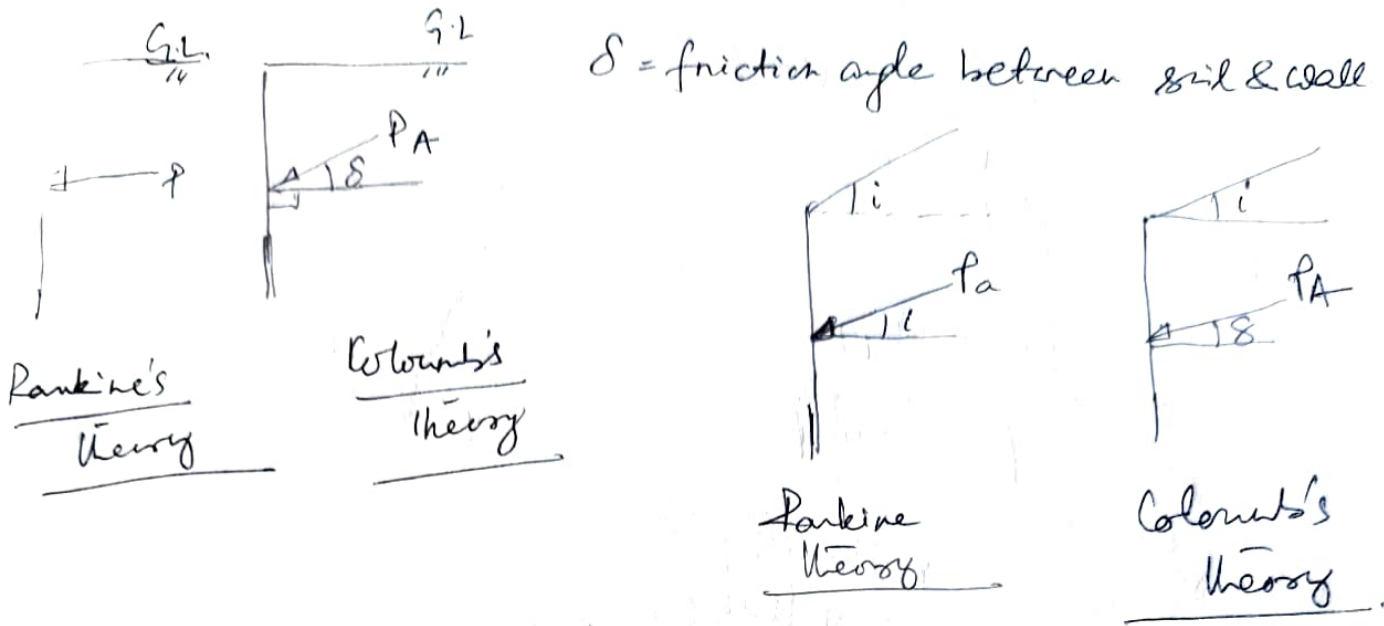 G.L.
G.L
δ = friction angle between soil & wall
P
P_A
δ
i
i
Pa
i
P_A
δ
Rankine's
theory
Coloumb's
theory
Rankine
theory
Coloumb's
theory